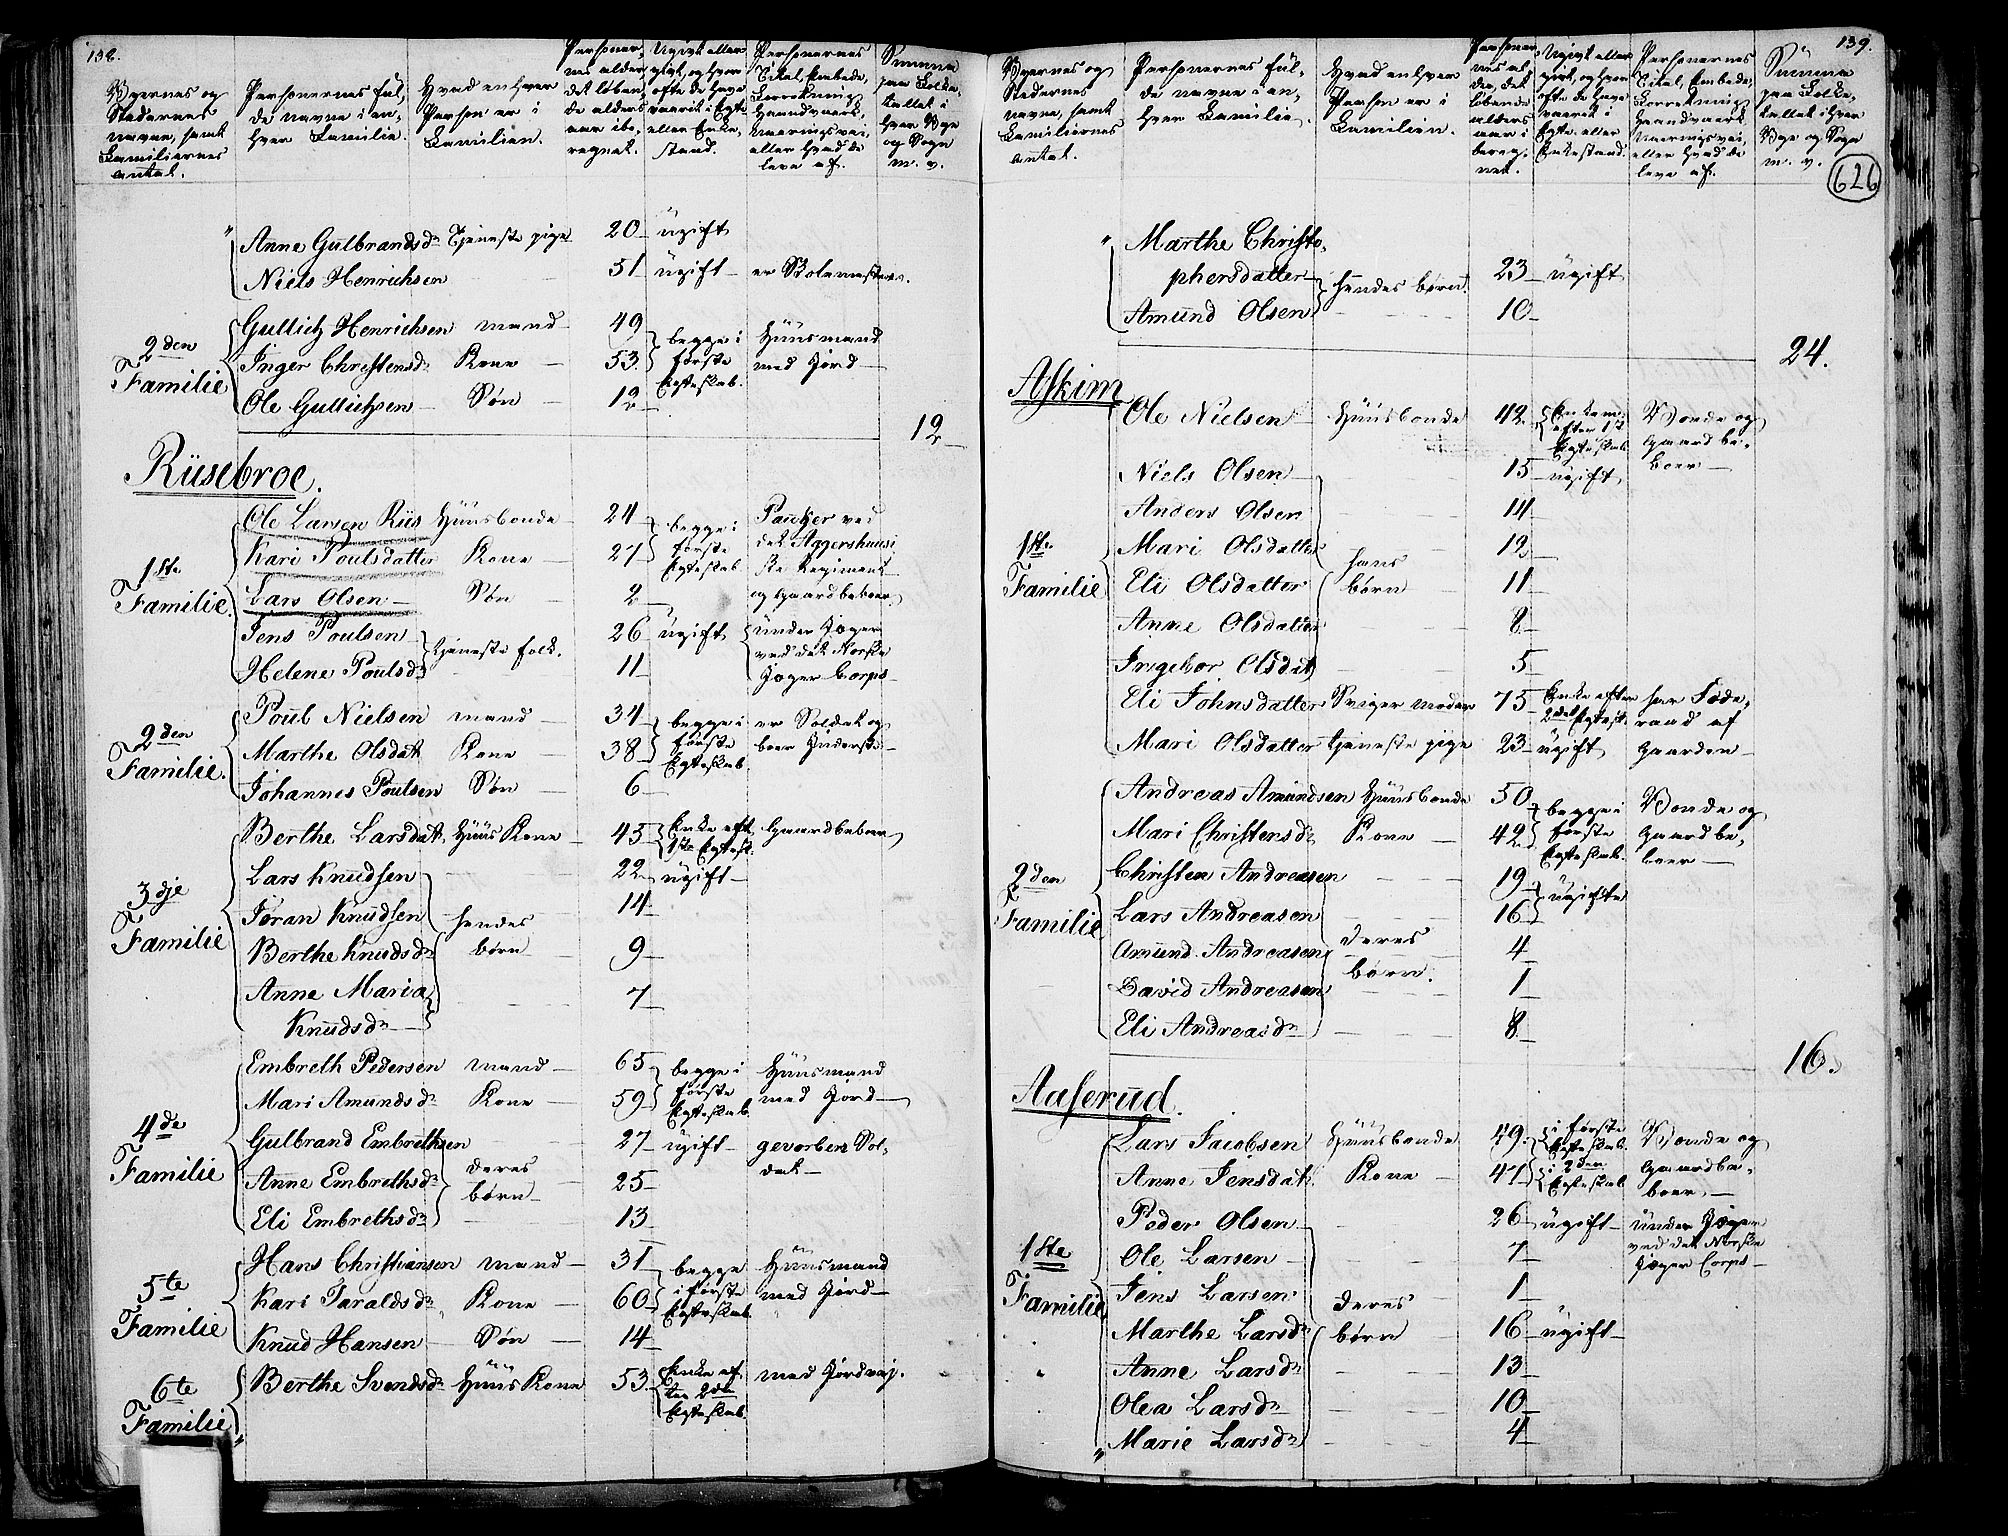 138.
Byernes og
Stedernes
navne, samt
Familiernes
antal.
Personernes ful-
de navne i en-
hver Familie.
Hvad enhver
Person er i
Familien.
Personer-
nes alder
det løben-
de alders
aar ibe-
regnet.
Ugivt eller
givt, og hvor
ofte de have
vaaret i Egte
eller Enke-
stand.
Personernes
Titel, Embede,
Forretning,
Haandværk,
Næringsvei,
eller hvad de
leve af.
Summa
paa Folke-
tallet i
hver Bye
og Sogn
m. v.
Anne Gulbrandsdr Tjeneste pige 20 ugift
Niels Henrichsen 51 ugift er Skolemester.
2den Familie
Gullich Henrichsen mand 49 begge i første Egteskab. Huusmand med Jord
Inger Christensdr Kone 53.
Ole Gullichsen Søn 12
12
Rüsebroe.
1ste Familie.
Ole Larsen Riis Huusbonde 24 begge i første Egteskab Pauker ved det Aggershuusiske Regiment og Gaardbeboer.
Kari Poulsdatter Kone 27
Lars Olsen Søn 2
Jens Poulsen tjeneste folk. 26 ugift under Jæger ved det Norske Jæger Corps
Helene Poulsdr 11
2den Familie.
Poul Nielsen mand 34 begge i første Egteskab er Soldat og boer Inderst
Marthe Olsdat Kone 38
Johannes Poulsen Søn 6
3dje Familie
Berthe Larsdat. Huus Kone 45 Enke eft 1ste Egtesk. Gaardbeboer
Lars Knudsen 22 ugift
Joran Knudsen hendes børn 14
Berthe Knudsdr 9
Anne Maria Knudsdr 7
4de Familie
Embreth Pedersen mand 65 begge i første Egteskab. Huusmand med Jord
Mari Amundsdr Kone 59
Gulbrand Embrethsen 27 ugift gevorben Soldat
Anne Embrethsdr deres børn 25
Eli Embrethsdr 13
5te Familie
Hans Christiansen mand 31 begge i første Egteskab Huusmand med Jord
Kari Taraldsdr Kone 60
Knud Hansen Søn 14
6te Familie
Berthe Svendsdr Huus Kone 53. Enke efter 2det Egteskab. med Jordvej.
139.
626
Byernes og
Stedernes
navne, samt
Familiernes
antal.
Personernes ful-
de navne i en-
hver Familie.
Hvad enhver
Person er i
Familien.
Personer-
nes al-
der, det
løbende
alders
aar i
bereg-
net.
Ugivt eller
givt, og hvor
ofte de have
vaaret i
Egte eller
Enkestand.
Personernes
Titel, Embede,
Forretning
Haandværk
Næringsvei,
eller hvad de
leve af.
Summa
paa Folke-
tallet i hver
Bye og Sogn
m. v.
Marthe Christophersdatter hendes børn. 23 ugift
Amund Olsen 10
24.
Askim
1ste Familie
Ole Nielsen Huusbonde 42 Enkem. efter 1st Egteskab Bonde og Gaardbeboer
Niels Olsen 15 ugift
Anders Olsen 14
Mari Olsdatter hans børn 12
Eli Olsdatter 11
Anne Olsdatter 8
Ingebor Olsdat 5
Eli Johnsdatter Sviger moder 75 Enke efter 2det Egtesk. har Føderaad af Gaarden
Mari Olsdatter tjeneste pige 23 ugift
2den Familie
Andreas Amundsen Huusbonde 50 begge i første Egteskab. Bonde og Gaardbeboer
Mari Christensdr Kone 42
Christen Andreasen 19 ugifte
Lars Andreasen 16
Amund Andreasen deres børn. 4
David Andreasen 1
Eli Andreasdr 8
16.
Aaserud.
1ste Familie
Lars Jacobsen Huusbonde 49. i første Egteskab. Bonde og Gaardbeboer
Anne Jensdat. Kone 47 i 2den Egteskab
Peder Olsen 26 ugift under Jæger ved det Norske Jæger Corps
Ole Larsen 7
Jens Larsen deres børn 1
Marthe Larsdr 16 ugift
Anne Larsdr 13
Olea Larsdr 10
Marie Larsdr 4